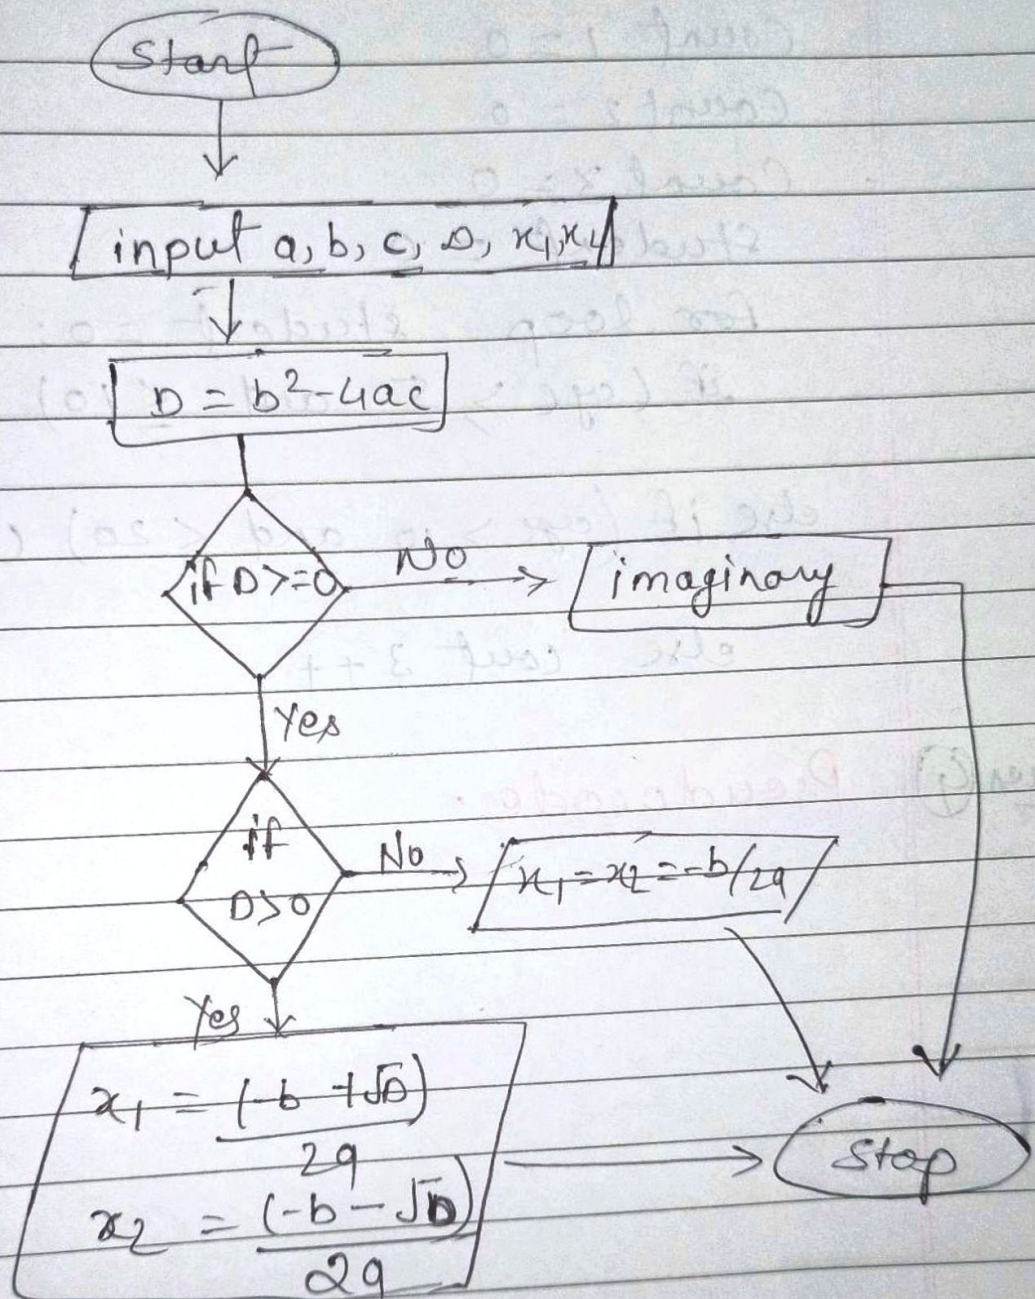 Start
input a, b, c, D, x1, x2
D = b²-4ac
if D>=0
No
imaginary
Yes
if
D>0
No
x1 = x2 = -b/2a
Yes
x1 = (-b +√D)
2a
x2 = (-b - √D)
2a
Stop